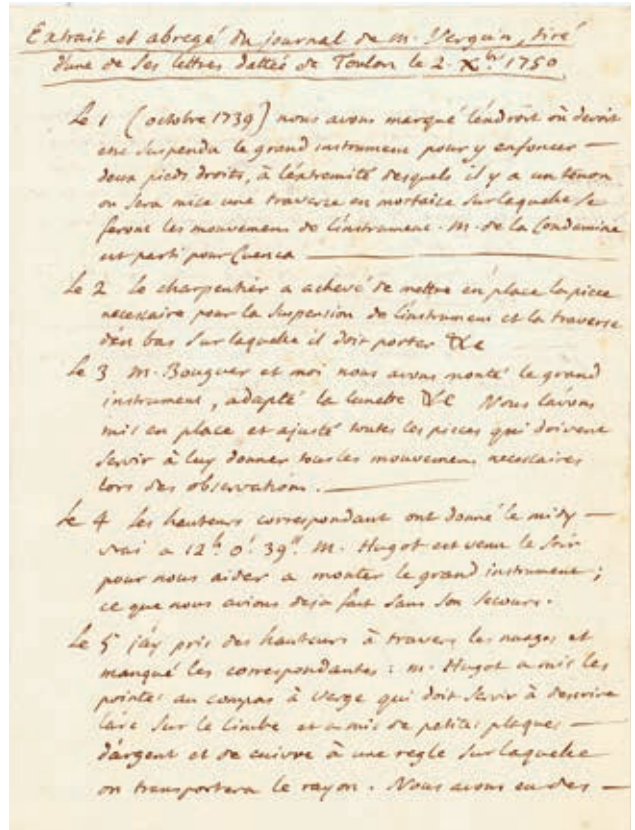 Extrait et abregé du journal de m. Verguin, tiré
d'une de ses lettres dattée de Toulon le 2. Xbre 1750
Le 1 (octobre 1739) nous avons marqué l'endroit où devoit
etre suspendu le grand instrument pour y enfoncer —
deux pieds droits, à l'extremité desquels il y a un tenon
ou sera mise une traverse en mortaise sur laquelle se
feront les mouvemens de l'instrument. M. de la Condamine
est parti pour Cuenca —
Le 2 le charpentier a achevé de mettre en place la piece
necessaire pour la suspension de l'instrument et la traverse
d'en bas sur laquelle il doit porter &c
Le 3 M. Bouguer et moi nous avons monté le grand
instrument, adapté la lunette &c Nous l'avons
mis en place et ajusté toutes les pieces qui doivent
servir à luy donner tous les mouvemens necessaires
lors des observations. —
Le 4 les hauteurs correspondant ont donné le midy —
vrai a 12h 0' 39". M. Hugot est venu le soir
pour nous aider a monter le grand instrument;
ce que nous avions deja fait sans son secours.
Le 5 j'ay pris des hauteurs à travers les nuages et
manqué les correspondantes: m. Hugot a mis les
pointes au compas à verge qui doit servir à descrire
l'arc sur le limbe et a mis de petites plaques —
d'argent et de cuivre à une regle sur laquelle
on transportera le rayon. Nous avons eu des —